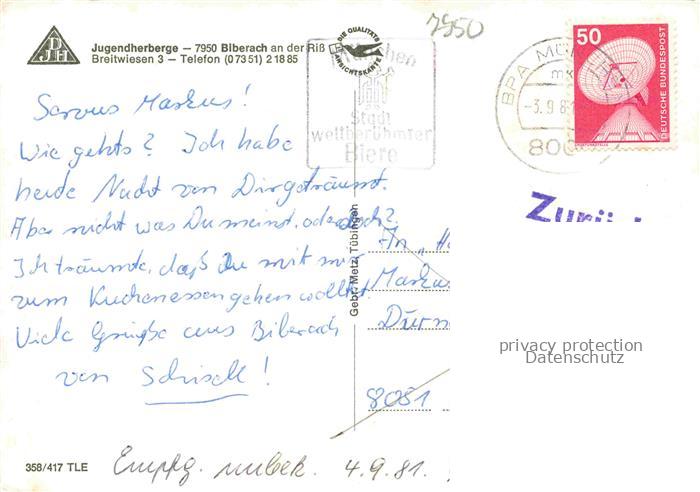 7950
DJH
Jugendherberge – 7950 Biberach an der Riß
Breitwiesen 3 – Telefon (07351) 21885
DIE QUALITÄTS
ANSICHTSKARTE
München
Stadt
weltberühmter
Biere
BPA MÜ
mk
-3.9.8
800
50
DEUTSCHE BUNDESPOST
ERDEFUNKSTELLE
Servus Markus!
Wie gehts? Ich habe
heute Nacht von Dir geträumt.
Aber nicht was Du meinst, oder doch?
Ich träumte, daß Du mit mir
zum Kuchenessen gehen wolltest.
Viele Grüße aus Biberach
von
Gebr. Metz, Tübingen
Zurü
An
Markus
8051
privacy protection
Datenschutz
358/417 TLE
Empfg. unbek. 4.9.81.